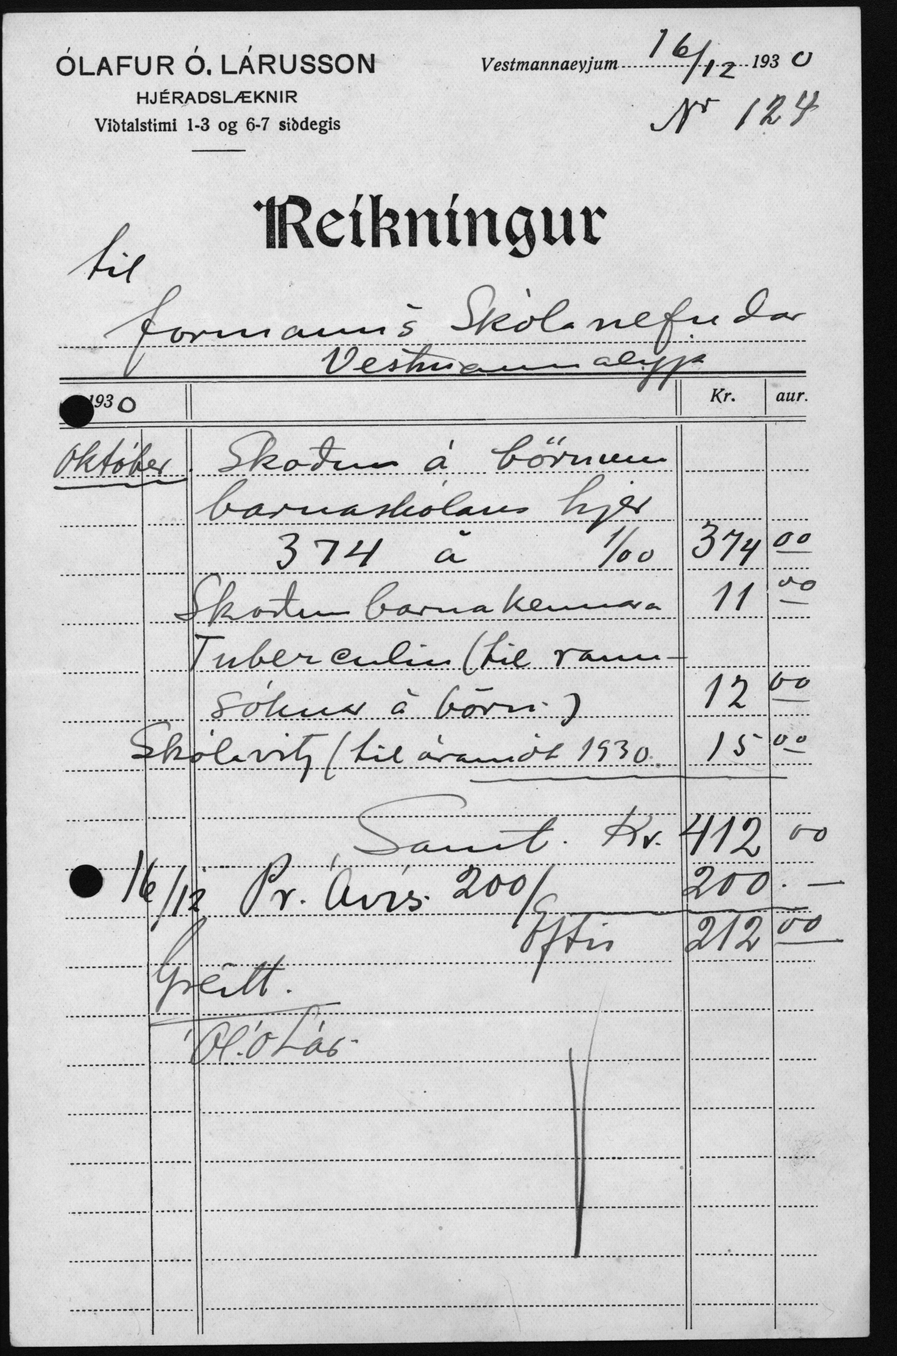 ÓLAFUR Ó. LÁRUSSON
HJÉRADSLÆKNIR
Viðtalstimi 1-3 og 6-7 siðdegis
Vestmannaeyjum 16/12 1930
Nr 124
Reikningur
til
formanns Skólanefndar
Vestmannaeyja
1930
Kr. aur.
Október Skoðun á börnum
barnaskólans hjer
374 á 1/00 374 00
Skoðun barnakennara 11 00
Tuberculin (til rann-
sóknar á börn.) 12 00
Skólavitj (til áramót 1930. 15 00
Samt. Kr. 412 00
16/12 Pr. Ávís. 200/ 200. —
Eftir 212 00
Greitt.
Ól. Ó Lár.